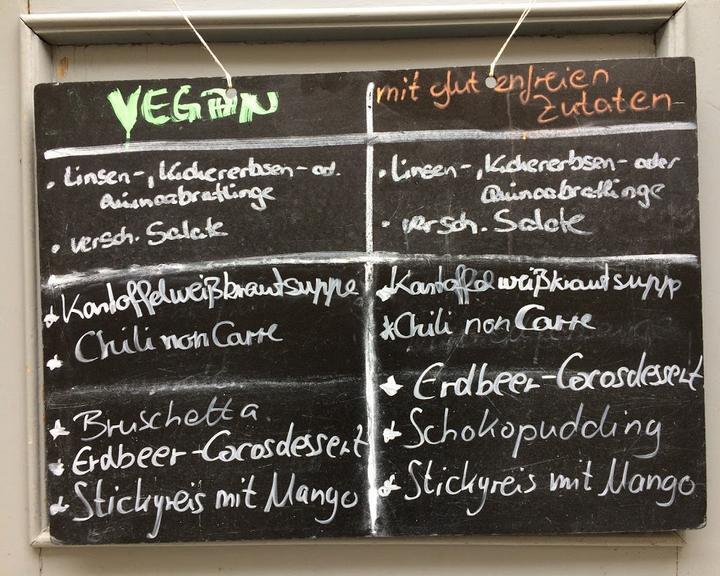 VEGAN
• Linsen-, Kichererbsen- od.
Quinoabratlinge
• versch. Salate
* Kartoffelweißkrautsuppe
* Chili non Carre
* Bruschetta
* Erdbeer-Cocosdessert
* Stickyreis mit Mango
mit glutenfreien
Zutaten
• Linsen-, Kichererbsen- oder
Quinoabratlinge
• versch. Salate
* Kartoffelweißkrautsupp
* Chili non Carre
* Erdbeer-Cocosdessert
* Schokopudding
* Stickyreis mit Mango